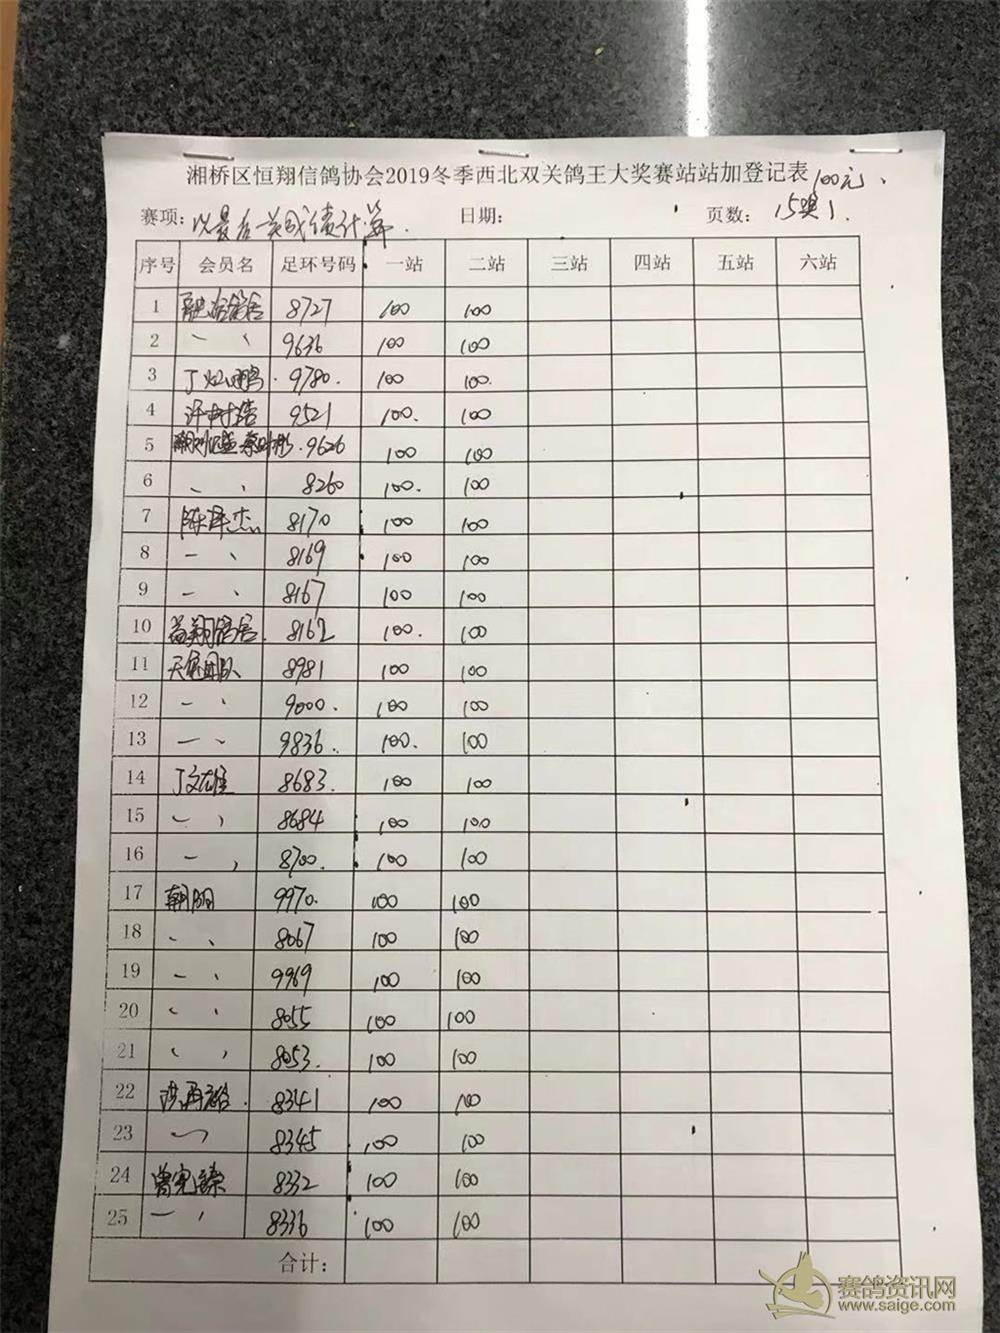 湘桥区恒翔信鸽协会2019冬季西北双关鸽王大奖赛站站加登记表 100元、
赛项: 以最后一关成绩计算. 日期: 页数: 15奖1.
序号 会员名 足环号码 一站 二站 三站 四站 五站 六站
1 8727 100 100
2 〃 9636 100 100
3 丁灿鹏. 9780. 100 100.
4 许树浩 9521 100. 100
5 9626 100 100
6 〃 8260 100. 100
7 陈泽杰 8170 100 100
8 〃 8169 100 100
9 〃 8167 100 100
10 翔鸽舍. 8162 100. 100
11 团队 8981 100 100
12 〃 9000. 100 100
13 〃 9836. 100. 100
14 丁文雄 8683. 100 100
15 〃 8684 100 100
16 〃 8700. 100 100
17 朝阳 9970. 100 100
18 〃 8067 100 100
19 〃 9969 100 100
20 〃 8055 100 100
21 〃 8053. 100 100
22 洪再裕. 8341 100 100
23 〃 8345 100 100
24 曾宪臻 8332 100 100
25 〃 8336 100 100
合计:
赛鸽资讯网
www.saige.com